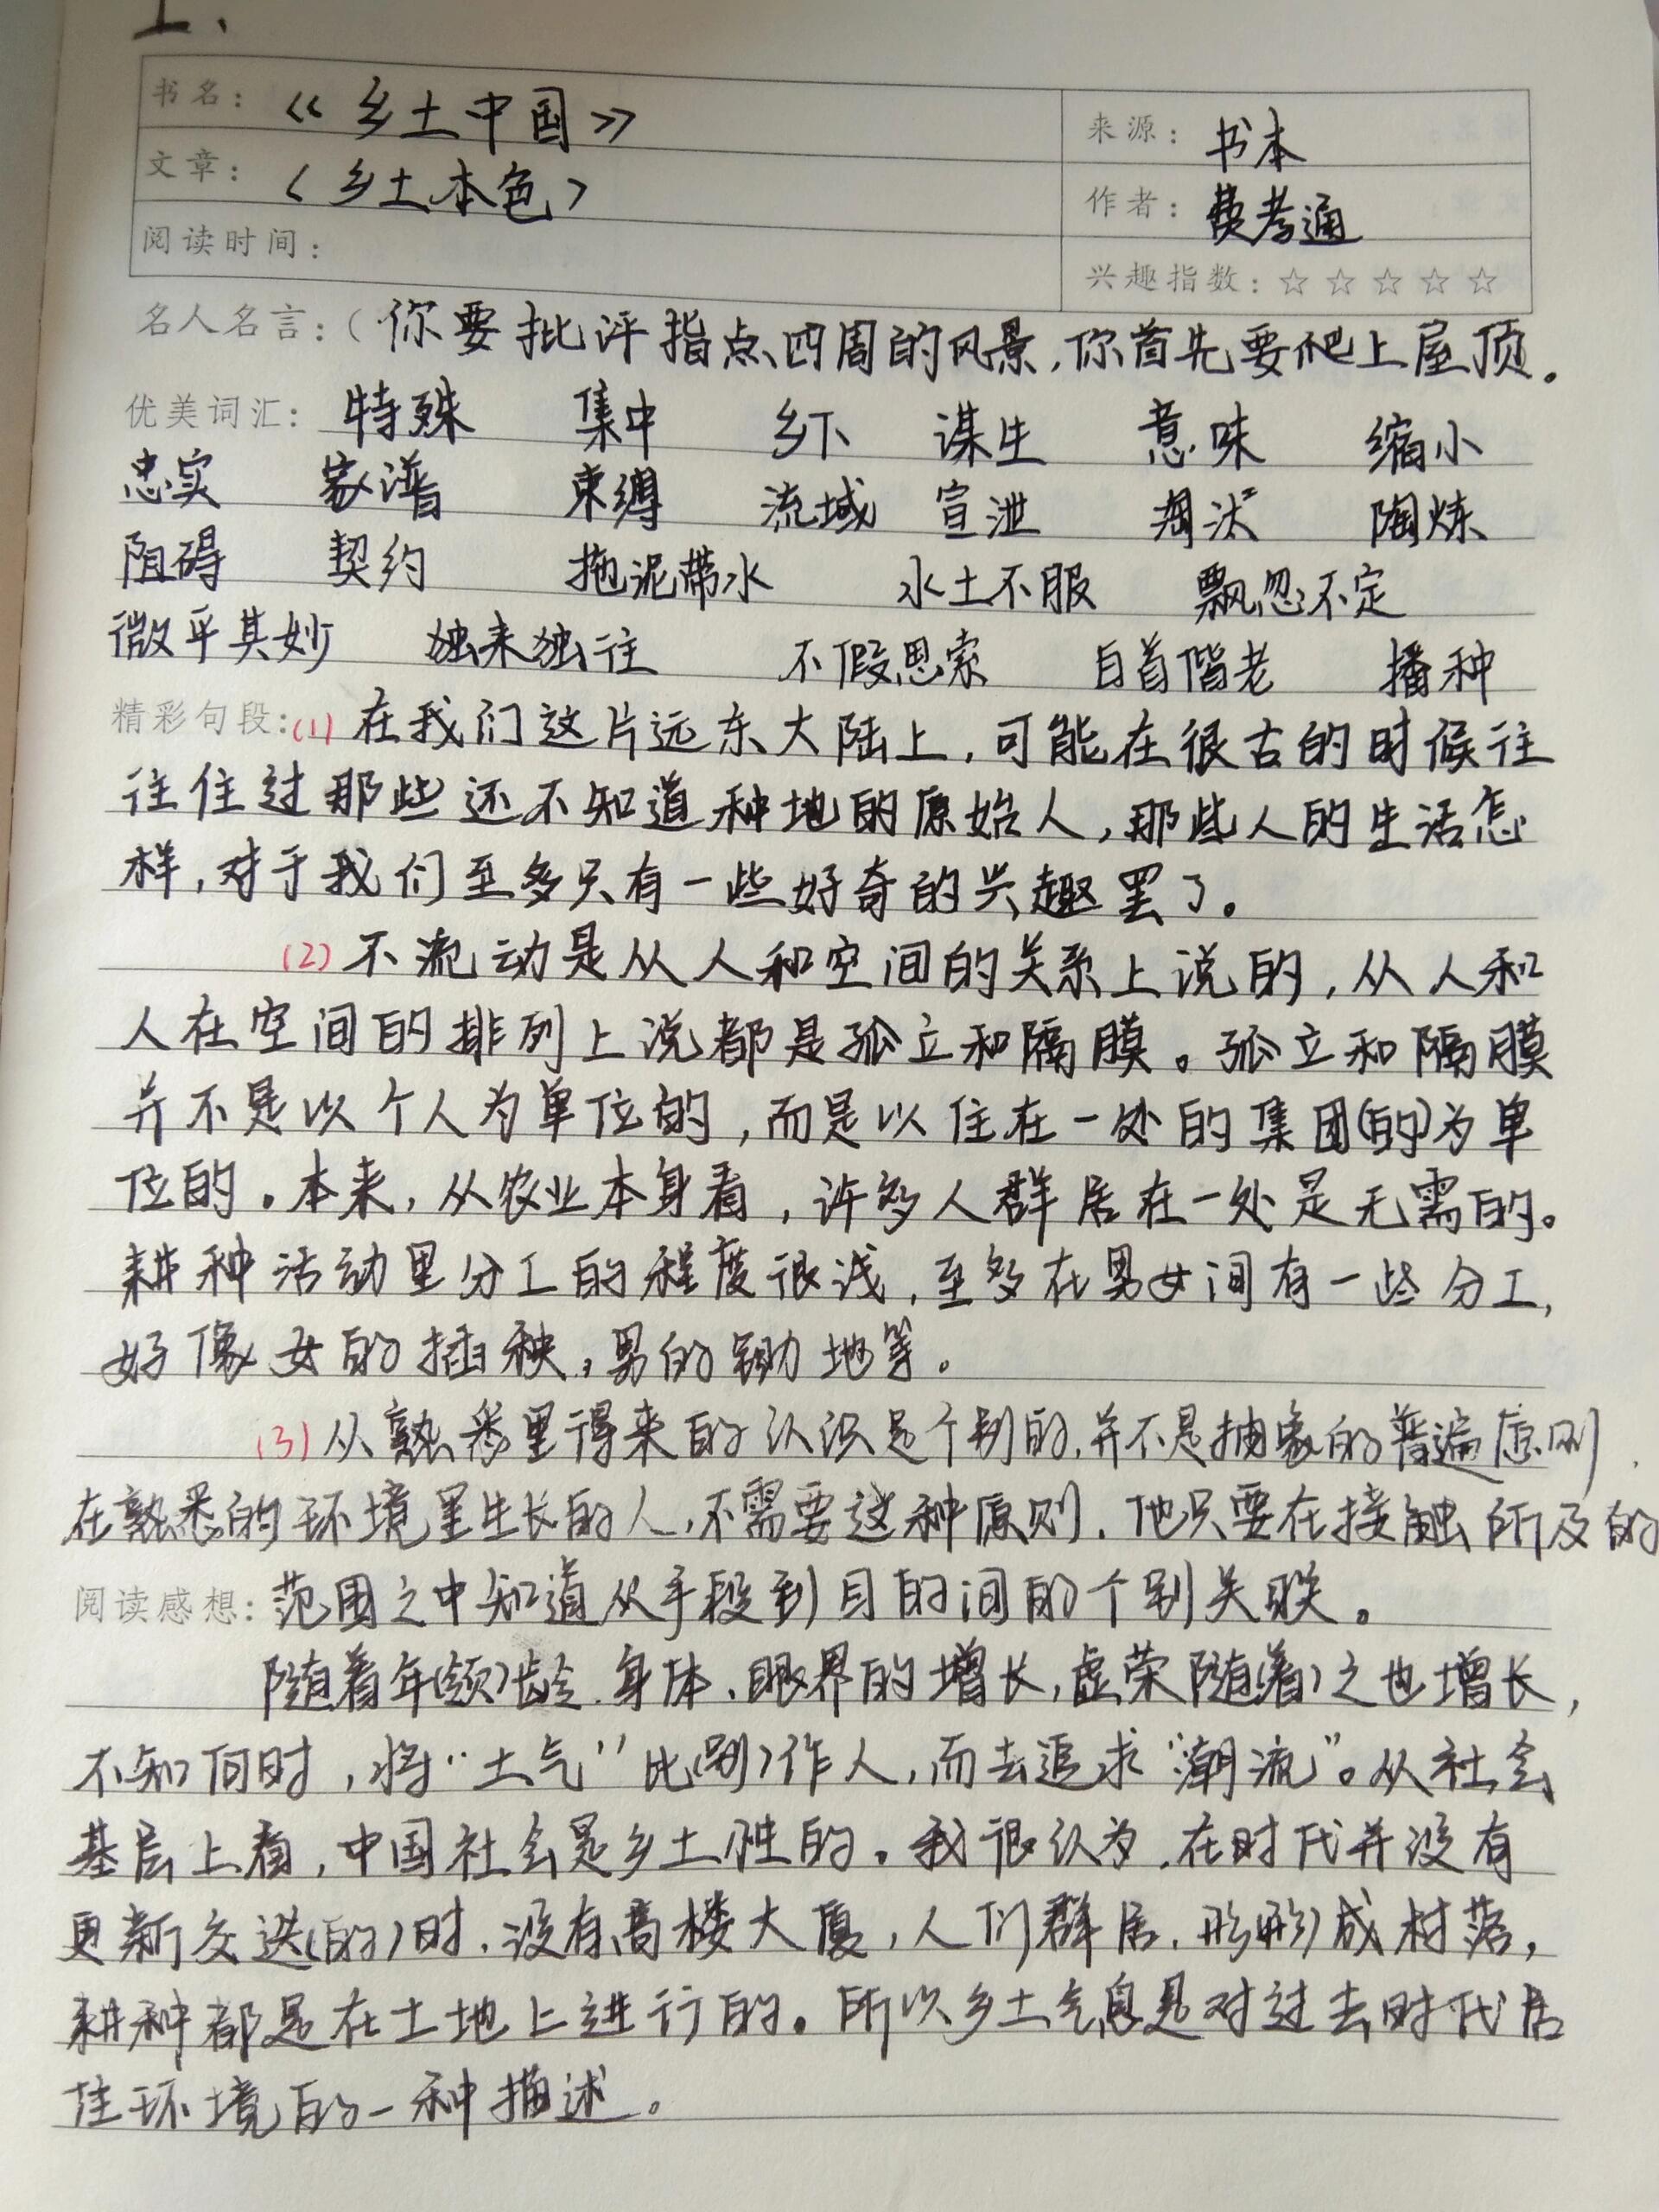 1、
书名：《乡土中国》
来源：书本
文章：〈乡土本色〉
作者：费孝通
阅读时间：
兴趣指数：☆☆☆☆☆
名人名言：（你要批评指点四周的风景，你首先要爬上屋顶。
优美词汇：特殊 集中 乡下 谋生 意味 缩小
忠实 家谱 束缚 流域 宣泄 淘汰 陶炼
阻碍 契约 拖泥带水 水土不服 飘忽不定
微乎其妙 独来独往 不假思索 白首偕老 播种
精彩句段：(1)在我们这片远东大陆上，可能在很古的时候往
往住过那些还不知道种地的原始人，那些人的生活怎
样，对于我们至多只有一些好奇的兴趣罢了。
(2)不流动是从人和空间的关系上说的，从人和
人在空间的排列上说都是孤立和隔膜。孤立和隔膜
并不是以个人为单位的，而是以住在一处的集团(的)为单
位的。本来，从农业本身看，许多人群居在一处是无需的。
耕种活动里分工的程度很浅，至多在男女间有一些分工，
好像女的插秧，男的锄地等。
(3)从熟悉里得来的认识是个别的，并不是抽象的普遍原则.
在熟悉的环境里生长的人，不需要这种原则，他只要在接触所及的
阅读感想：范围之中知道从手段到目的间的个别关联。
随着年(颂)龄、身体、眼界的增长，虚荣随(着)之也增长，
不知何时，将“土气”比(别)作人，而去追求“潮流”。从社会
基层上看，中国社会是乡土性的。我很认为，在时代并没有
更新交迭(的)时，没有高楼大厦，人们群居，形(形)成村落，
耕种都是在土地上进行的。所以乡土气息是对过去时代居
住环境的一种描述。